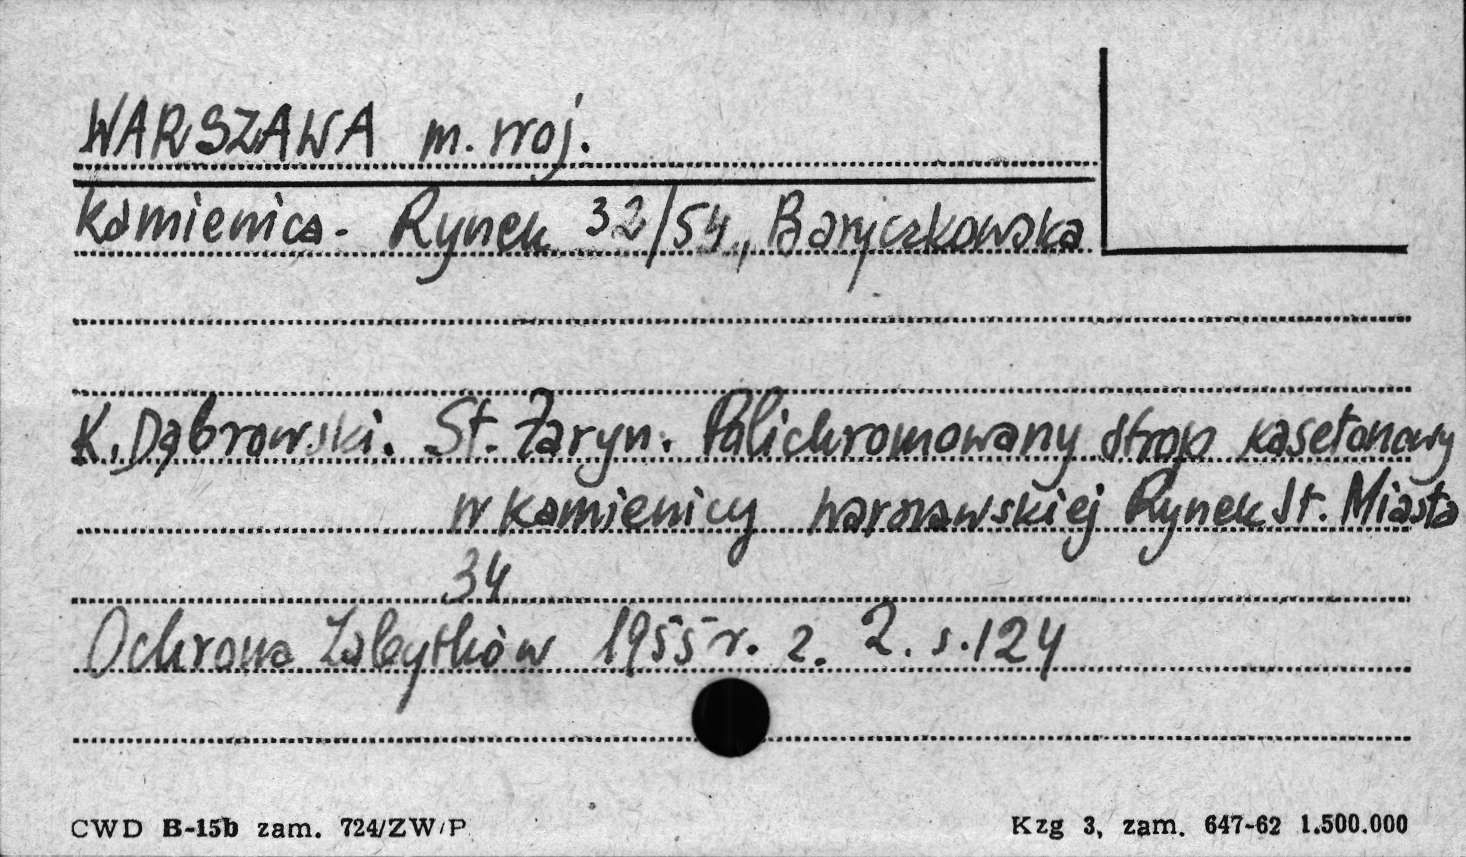 WARSZAWA m. woj.
Kamienica - Rynek 32/54, Baryczkowska
K. Dąbrowski. St. Żaryn. Polichromowany strop kasetonowy
w kamienicy warszawskiej Rynek St. Miasta
34
Ochrona Zabytków 1955 r. z. 2. s. 124
CWD B-15b zam. 724/ZW/P
Kzg 3, zam. 647-62 1.500.000